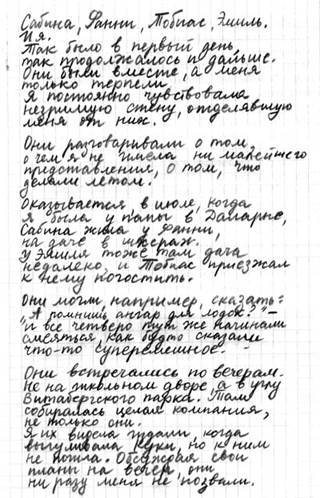 Сабина, Фанни, Тобиас, Эмиль.
И я.
Так было в первый день,
так продолжалось и дальше.
Они были вместе, а меня
только терпели.
Я постоянно чувствовала
незримую стену, отделявшую
меня от них.
Они разговаривали о том,
о чем я не имела ни малейшего
представления, о том, что
делали летом.
Оказывается, в июле, когда
я была у папы в Даларне,
Сабина жила у Фанни,
на даче в шхерах.
У Эмиля тоже там дача
недалеко, и Тобиас приезжал
к нему погостить.
Они могли, например, сказать:
"А помнишь ангар для лодок?" –
и все четверо тут же начинали
смеяться, как будто сказали
что-то суперсмешное.
Они встречались по вечерам.
Не на школьном дворе, а в углу
Витабергского парка. Там
собиралась целая компания,
не только они.
Я их видела издали, когда
выгуливала Куки, но к ним
не подходила. Обсуждая свои
планы на вечер, они
ни разу меня не позвали.